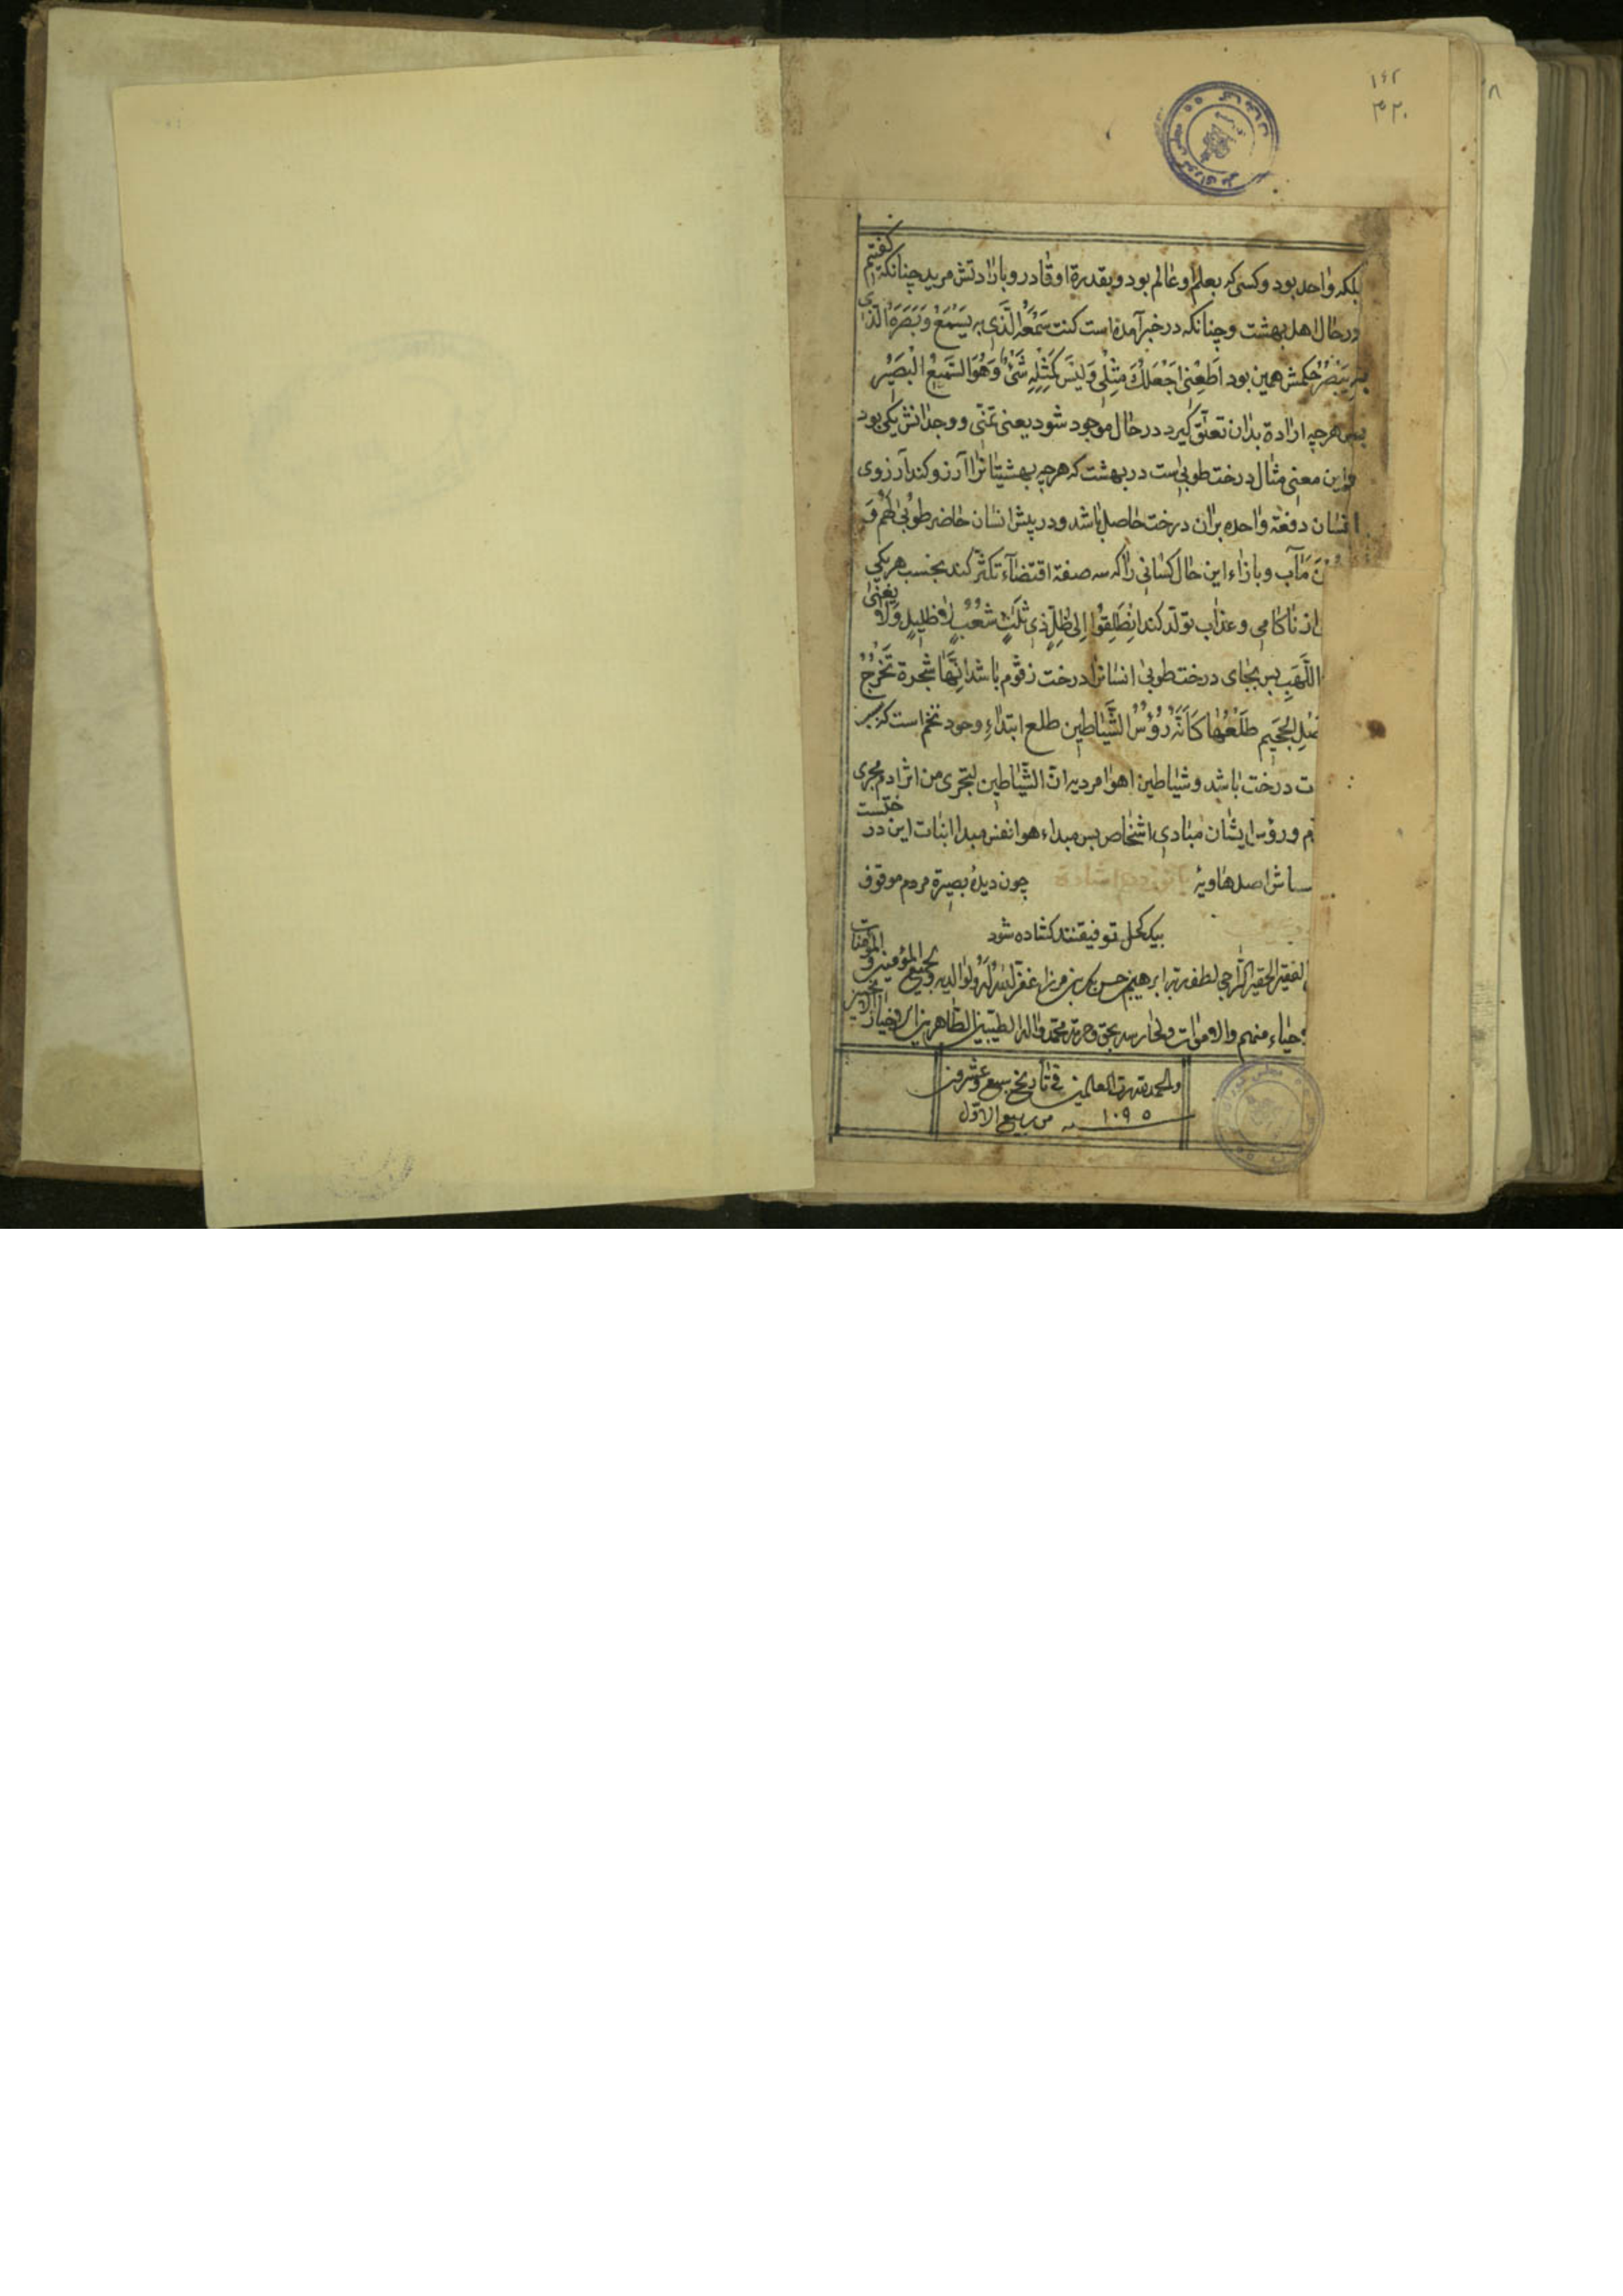 ۱۶۲
۳۲۰
بلکه واحد بود و کسی که بعلم او عالم بود و بقدرة او قادر و بارادتش مرید چنانکه گفتیم
در حال اهل بهشت و چنانکه در خبر آمده است کنت سَمْعُه الَّذی به یَسْمَعُ وَبَصَرَهُ الّذی
بِهِ یَبْصُرُ حکمش همین بود اَطِعْنِی اَجْعَلْكَ مِثْلِی وَلَیْسَ کَمِثْلِهِ شَیْءٌ وَهُوَ السَّمِیعُ الْبَصِیْر
پس هرچه ارادة بدان تعلّق گیرد در حال موجود شود یعنی تمنّی و وجدانش یکی بود
و این معنی مثال درخت طوبی است در بهشت که هرچه بهشتیانرا آرزو کند آرزوی
انسان دفعة واحده بران درخت حاصل باشد و در پیش انسان حاضر طُوْبیٰ لَهُمْ وَ
مَآب و بازاء این حال کسانی را که سه صفة اقتضآء تکثّر کند بجنسب هریکی
از ناکامی و عذاب تولّد کند اِنْطَلِقُوا اِلیٰ ظِلٍّ ذِی ثَلٰثِ شُعَبٍ لَا ظَلِیلٍ وَلَا یُغْنِی
اللَّهَبِ پس بجای درخت طوبی انسانرا درخت زقّوم باشد اِنَّهَا شَجَرة تَخْرُجُ
الْجَحِیْمِ طَلْعُهَا کَاَنَّهُ رُؤُسُ الشَّیَاطِیْن طلع ابتداءِ وجود تخم است که
ت درخت باشد و شیاطین اهوا مردیه انّ الشّیاطین لتجری من ادم مجری
م و رؤس ایشان مبادی اشخاص پس مبداء هوا نفس مبدا انبات این درختست
اصل هاویه چون دیدۀ بصیرة مردم موقوف
بیک کحل توفیقند کشاده شود
الفقیر الحقیر الراجی لطف ربه ابرهیم حسن بک بن میرزا غفر الله له ولوالدیه ولجمیع المؤمنین و المؤمنات
منهم والاموات بحق محمد واله الطیبین الطاهرین
والحمد لله رب العالمین فی تاریخ سبع وعشرون
من ربیع الاوّل سنه ۱۰۹۵